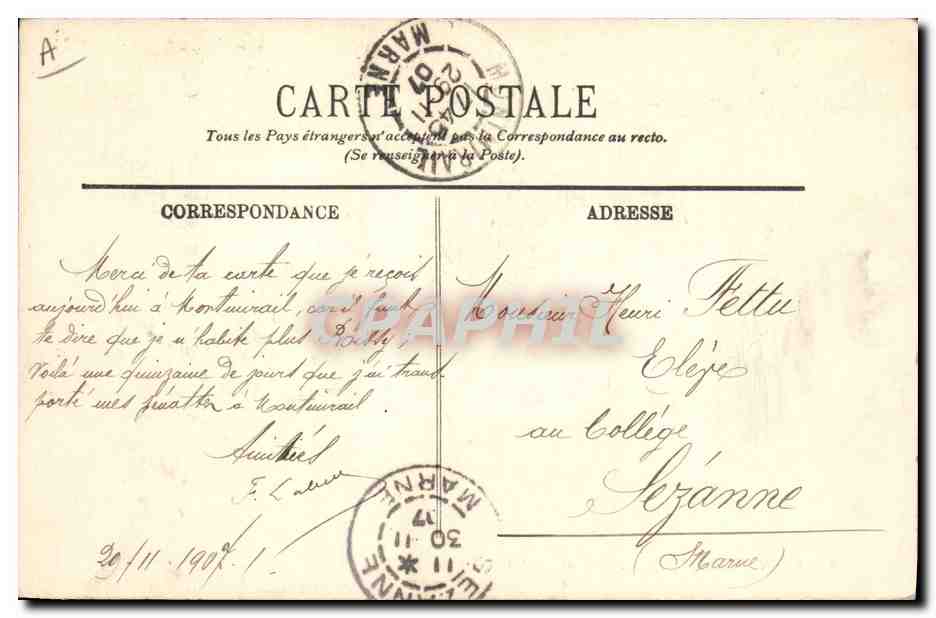 A
MONTMIRAIL
MARNE
29 11
07
CARTE POSTALE
Tous les Pays étrangers n'acceptent pas la Correspondance au recto.
(Se renseigner à la Poste).
CORRESPONDANCE
Merci de ta carte que je reçois
aujourd'hui à Montmirail, car il faut
te dire que je n'habite plus Poissy,
Voilà une quinzaine de jours que j'ai trans-
porté mes pénattes à Montmirail
Amitiés
F.
29/11.1907.
ADRESSE
Monsieur Henri Fettu
Elève
au Collège
Sézanne
(Marne)
CPAPHIL
SEZANNE
11 *
30 11
07
MARNE